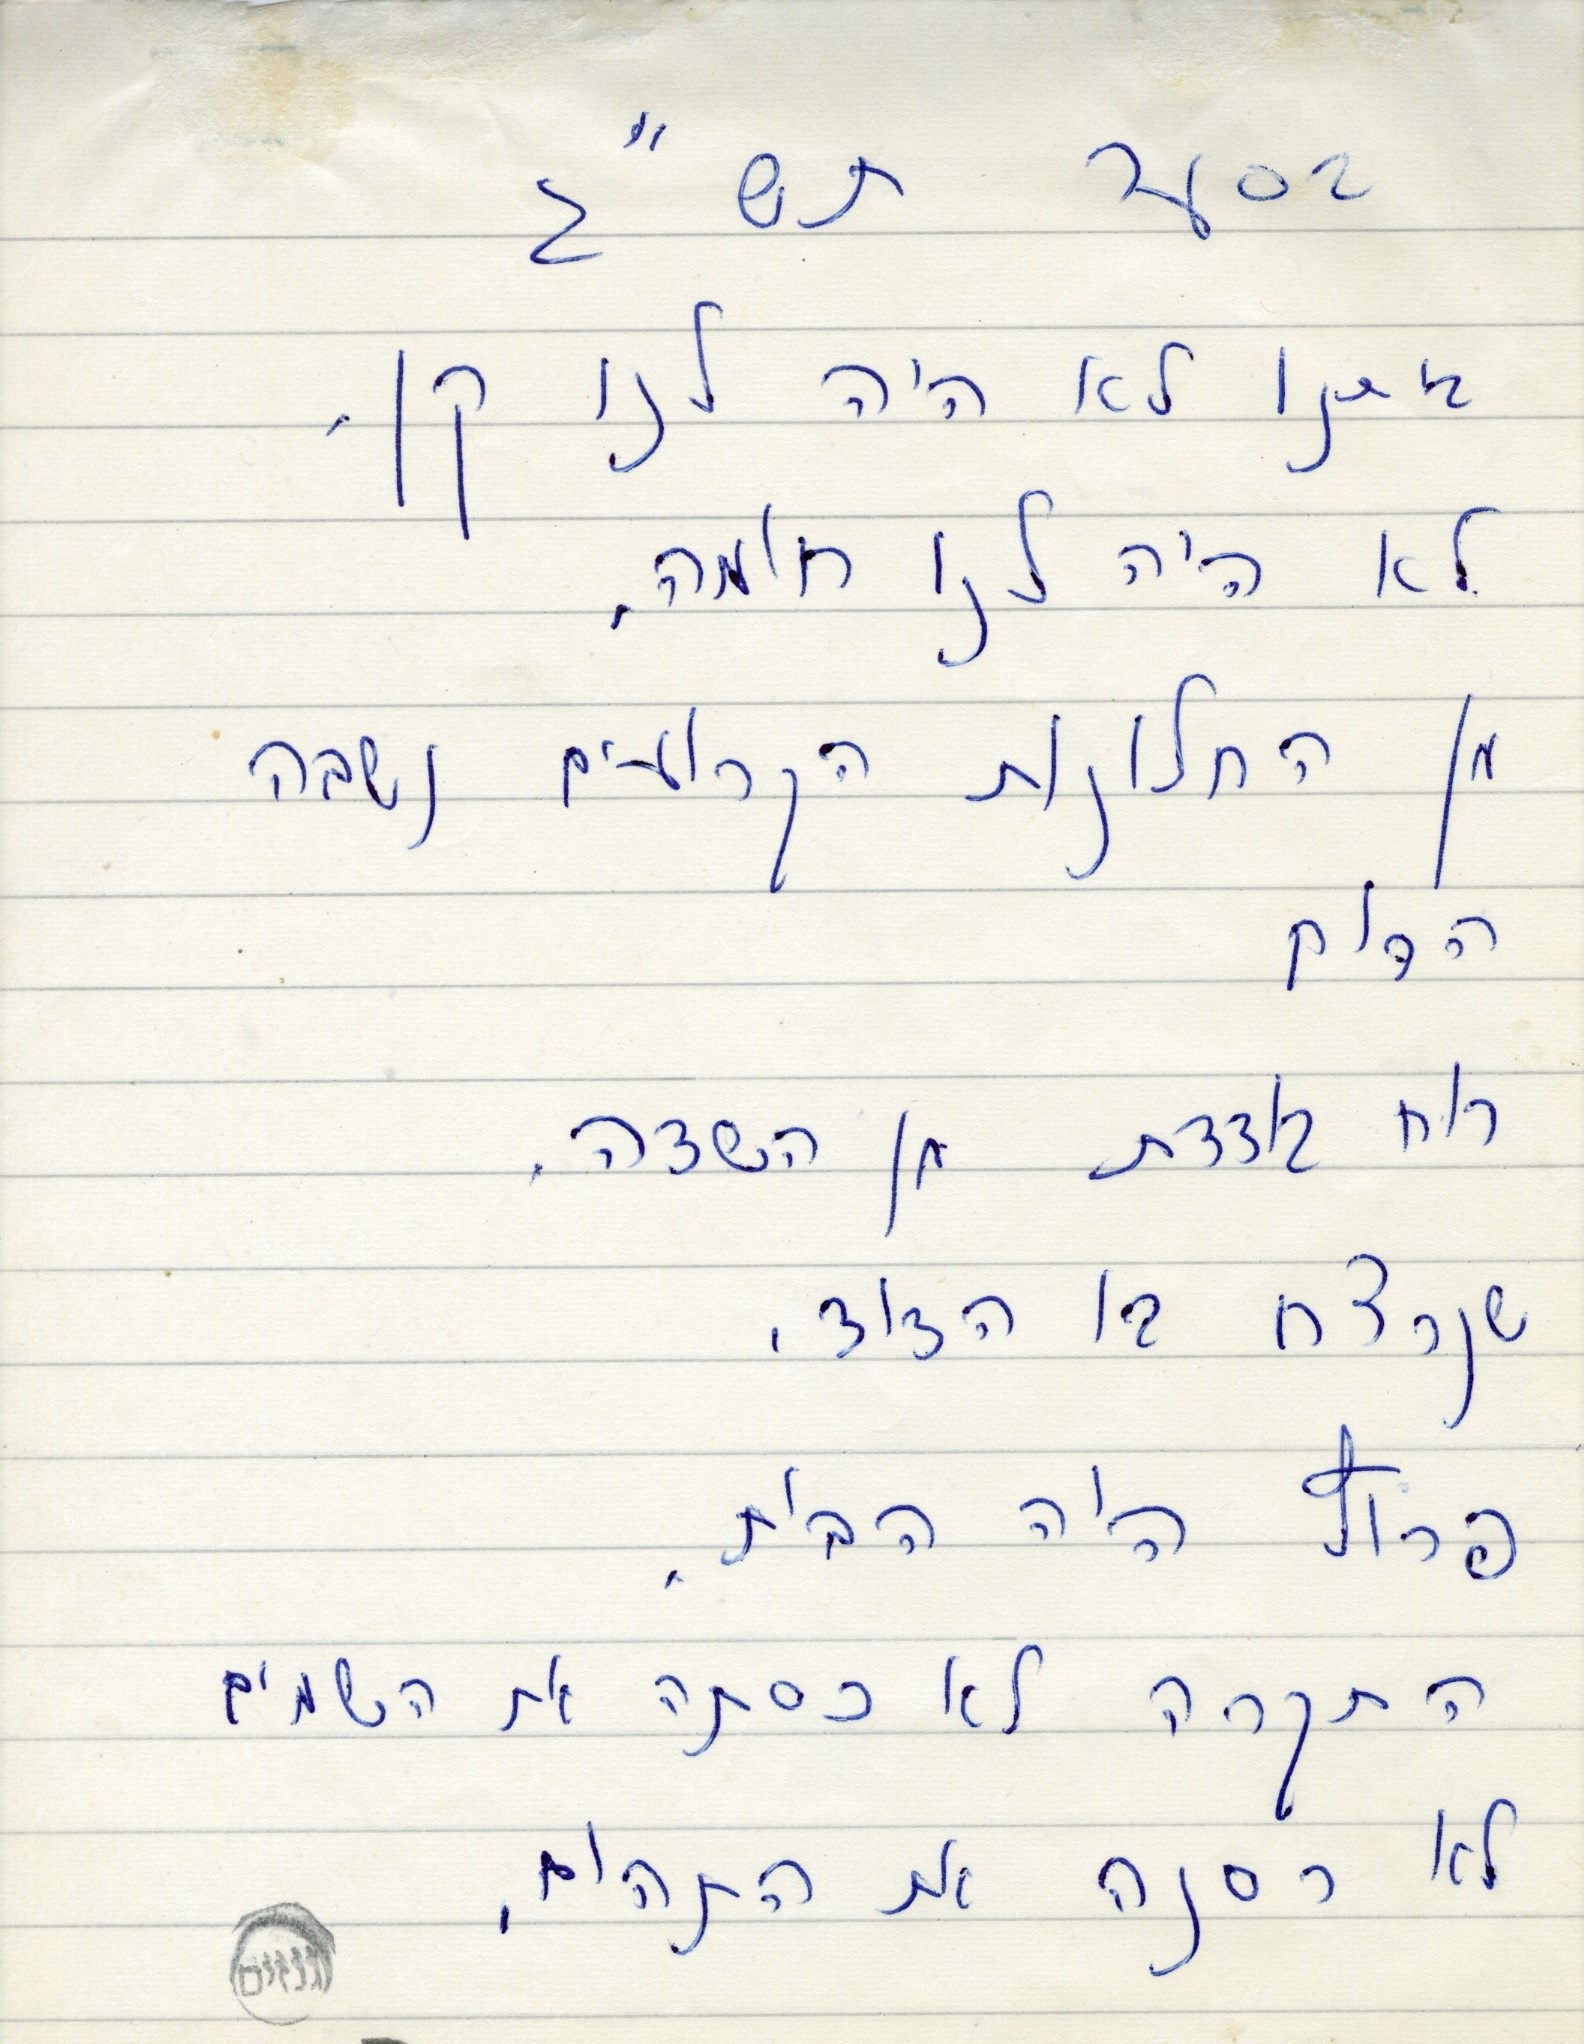 בסער תש"ג
אתנו לא היה לנו קן.
לא היה לנו חומה.
מן החלונות הקרועים נשבה
הרוח
רוח אדרת מן השדה.
שנרצח בו הדוד.
פרוץ היה הבית.
התקרה לא כסתה את השמים
לא רסנה את התהום.